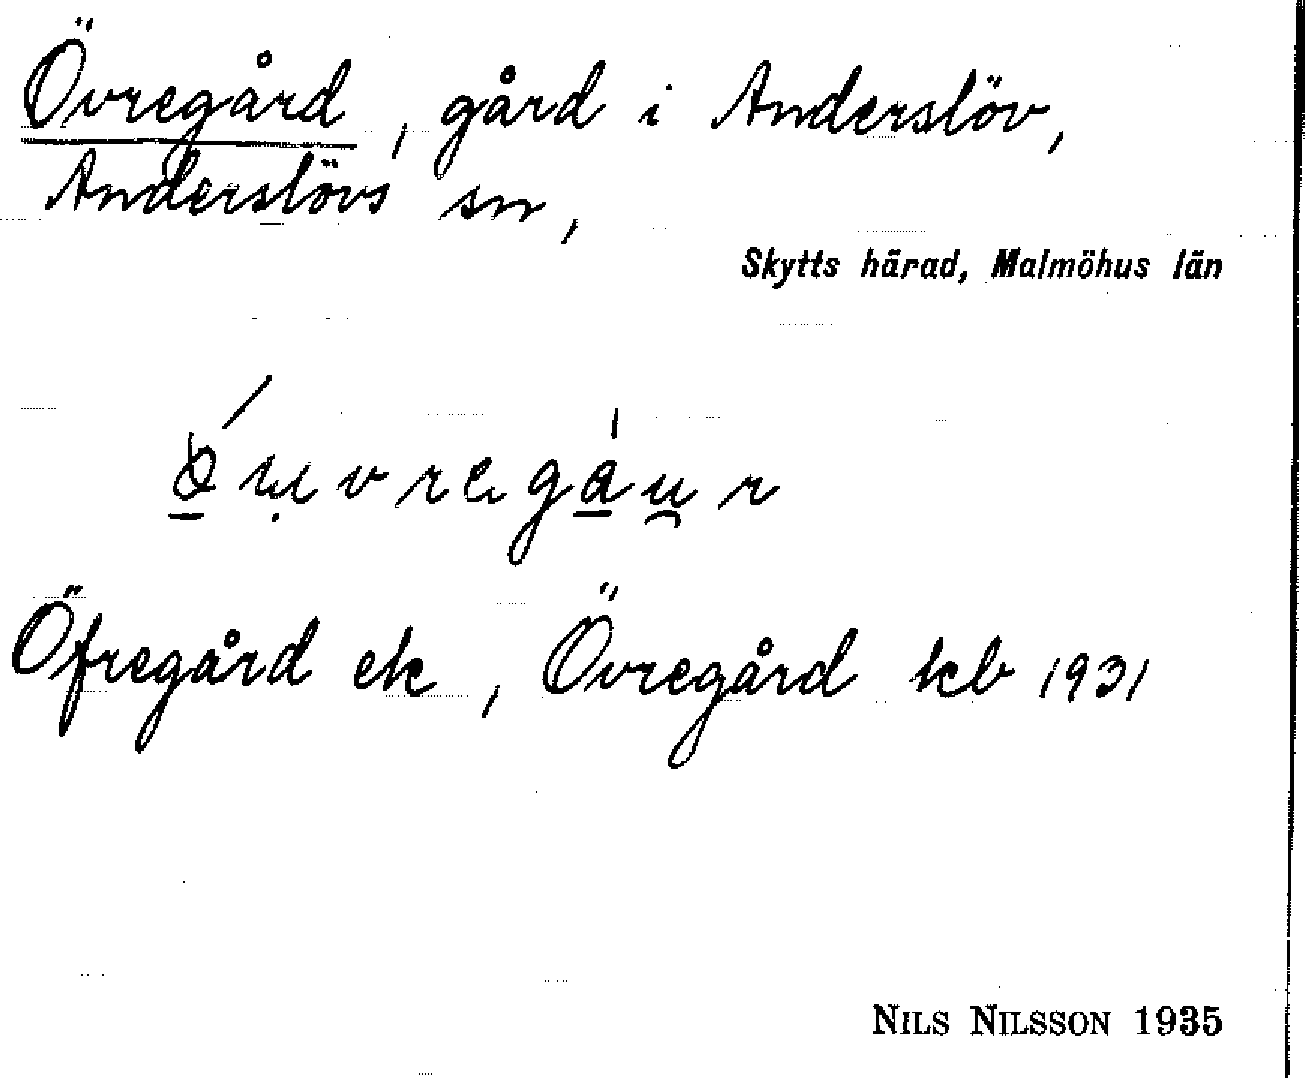 Övregård, gård i Anderslöv,
Anderslövs sn,
Skytts härad, Malmöhus län
Öfregård ek, Övregård kb 1931
NILS NILSSON 1935